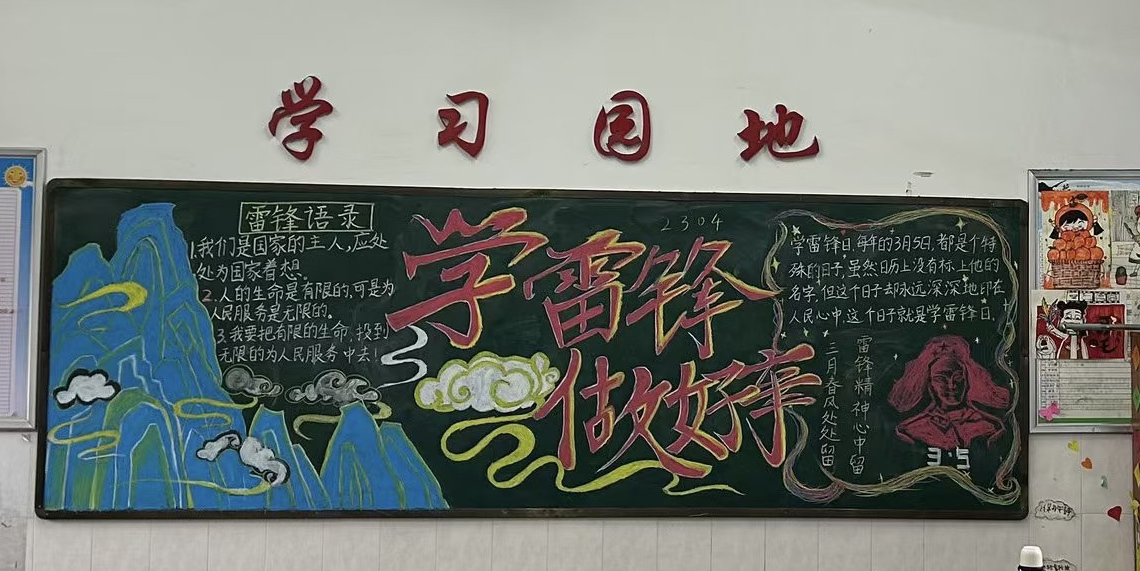 学习园地
雷锋语录
1.我们是国家的主人,应处
处为国家着想.
2.人的生命是有限的,可是为
人民服务是无限的。
3.我要把有限的生命,投到
无限的为人民服务中去!
2304
学雷锋
做好事
学雷锋日,每年的3月5日,都是个特
殊的日子,虽然日历上没有标上他的
名字,但这个日子却永远深深地印在
人民心中,这个日子就是学雷锋日.
雷锋精神心中留
三月春风处处留
3·5